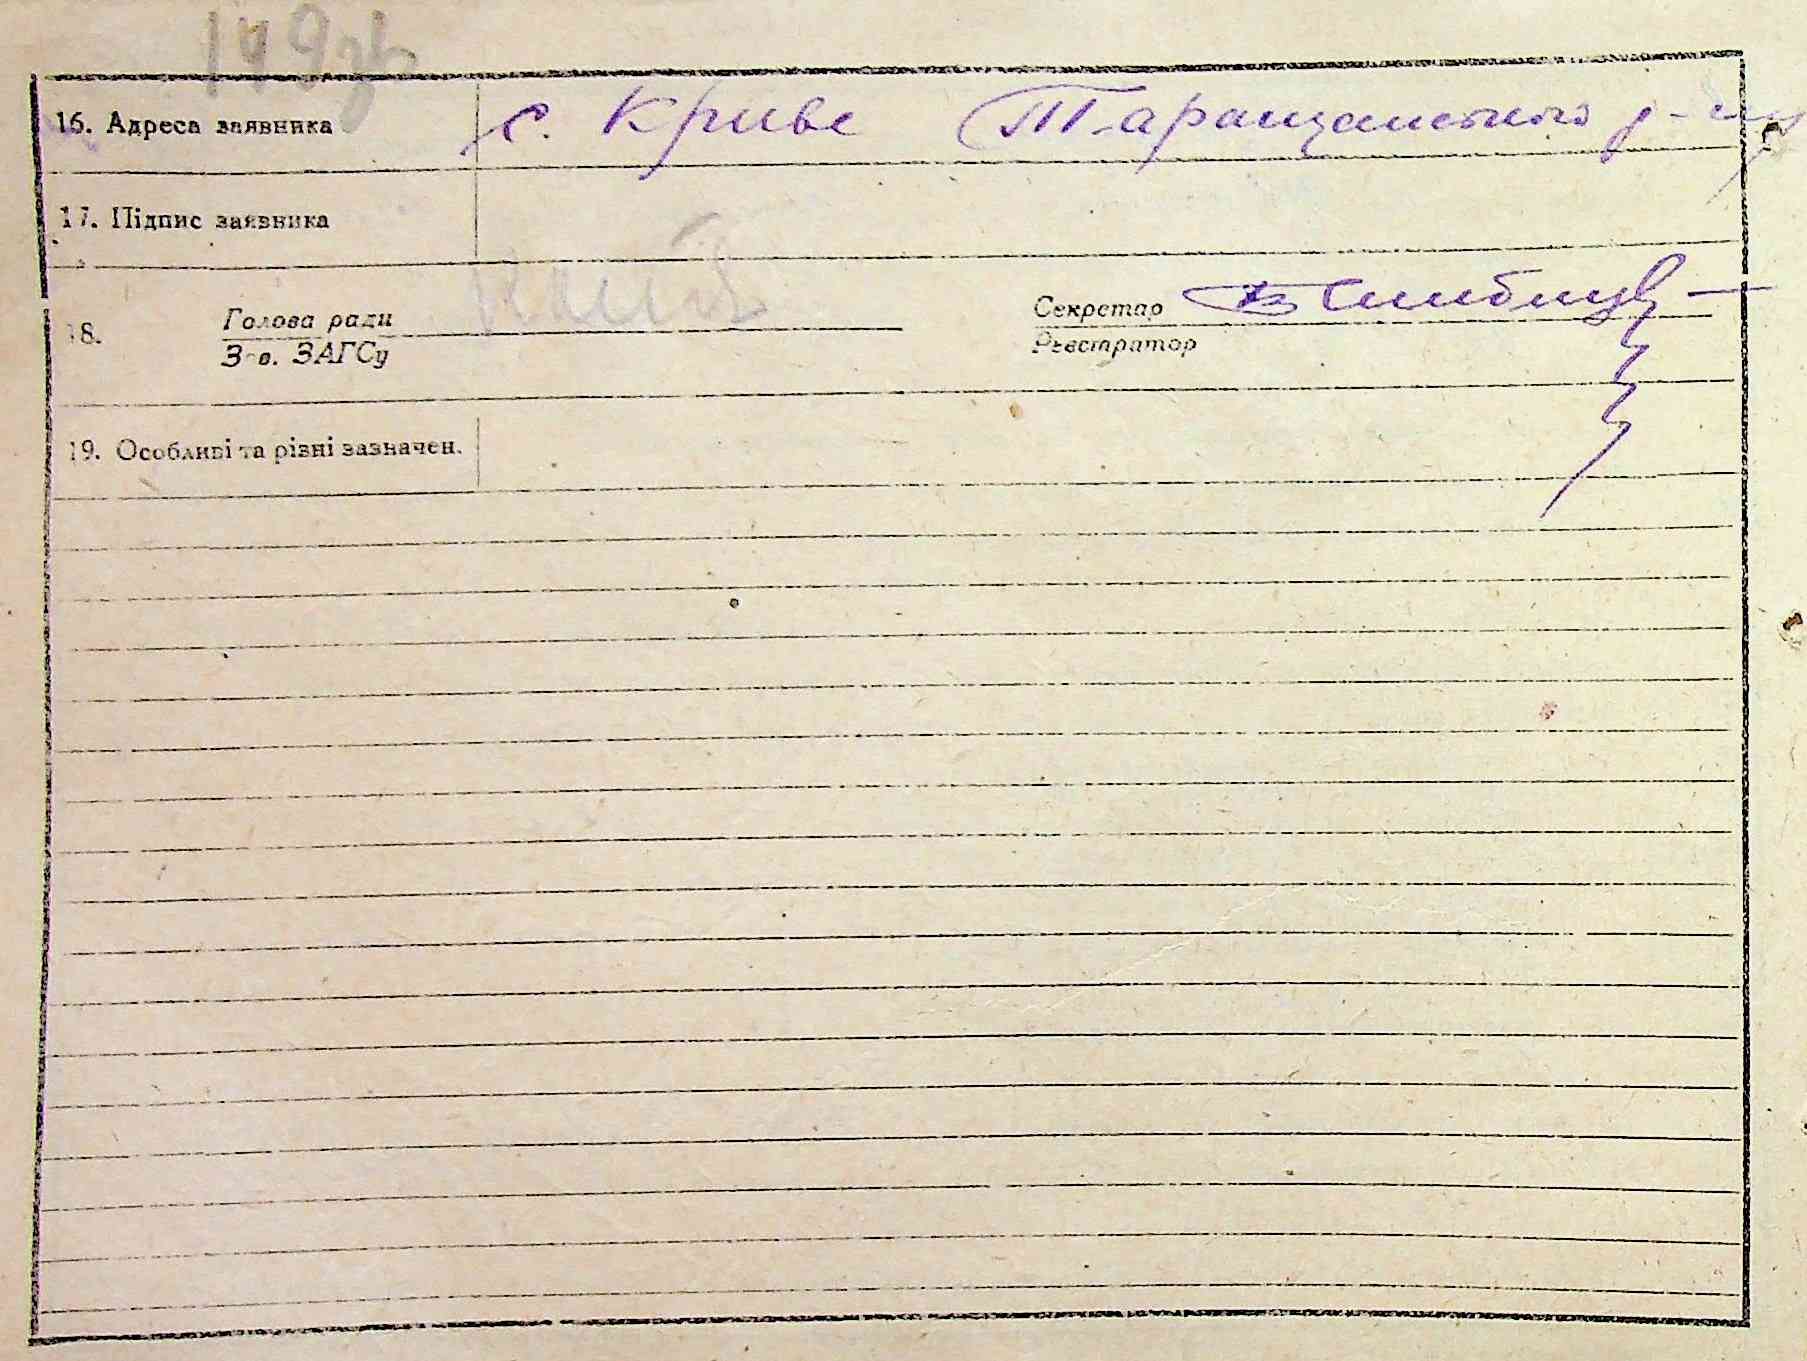 149зв
16. Адреса заявника с. Криве Таращанського р-ну
17. Підпис заявника
18. Голова ради Секретар
З-в. ЗАГСу Реєстратор
19. Особливі та різні зазначен.